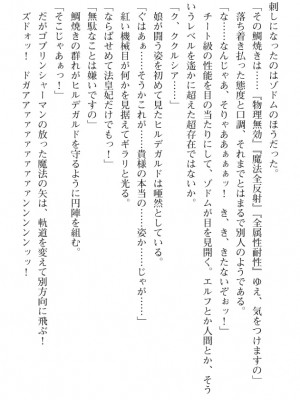 刺しになったのはゾドムのほうだった。
「その鯛焼きは……『物理無効』『魔法全反射』『全属性耐性』ゆえ、気をつけますの」
落ち着き払った態度と口調、それまでとはまるで別人のようである。
「な……なんじゃあ、そりゃああぁぁぉっ！　き、き、きたないぞぉっ！」
チート級の性能を目の当たりにして、ゾドムが目を見開く。エルフとか人間とか、そう
いうレベルを遥かに超えた超存在ではないか。
「ク、ククルシア……」
娘が闘う姿を初めて見たヒルデガルドは唖然としている。
「ぐはあぁ……そうかこれが……貴様の本当の……姿か……じゃが……」
紅い機械目が何かを見据えてギラリと光る。
「ならばせめて法皇妃だけでもっ！」
「無駄なことは嫌いですの」
鯛焼きの群れがヒルデガルドを守るように円陣を組む。
「そこじゃあぁっ！」
だがゴブリンシャーマンの放った魔法の矢は、軌道を変えて別方向に飛ぶ！
ズドォッ！　ドガアァァァァァァァンンンンンッッ！